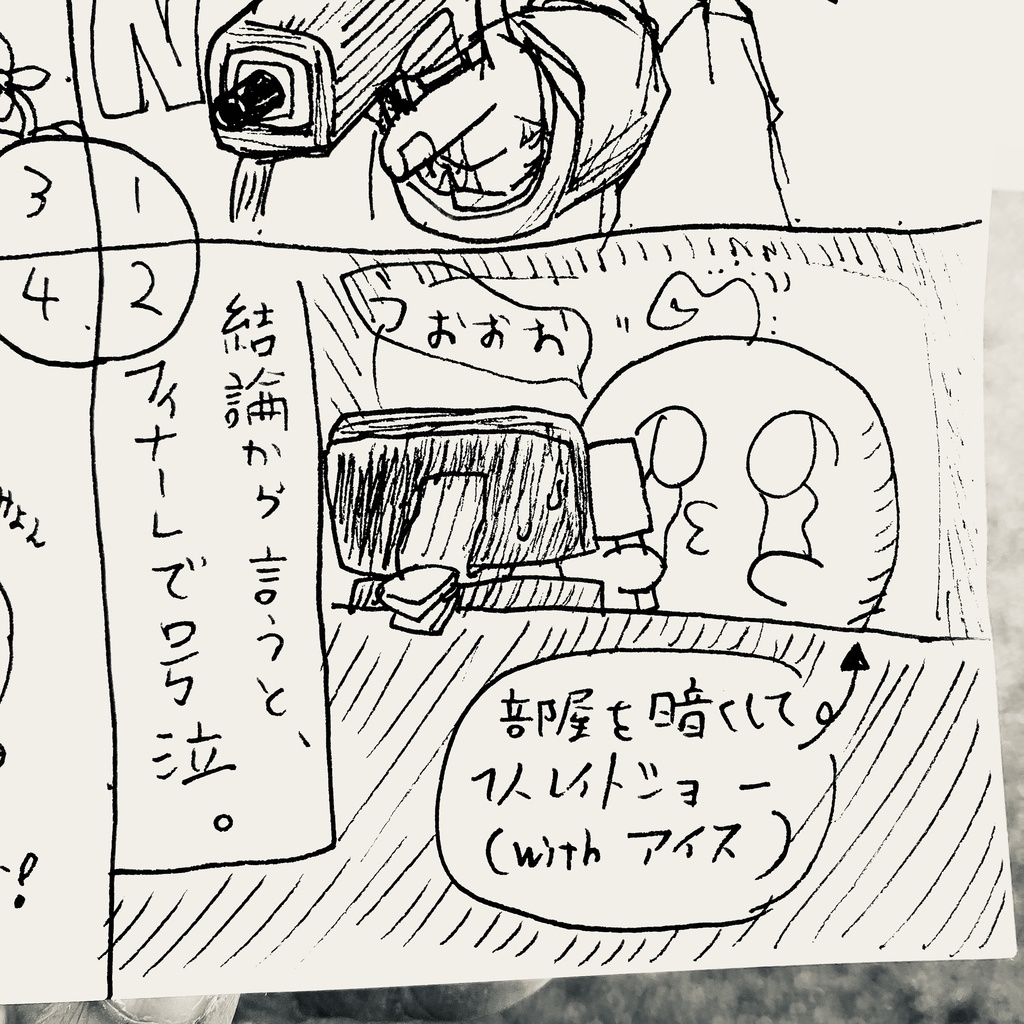 N
1
2
3
4
結論から言うと、
フィナーレで号泣。
うおおお
部屋を暗くして
1人レイトショー
(with アイス)
みょん
!